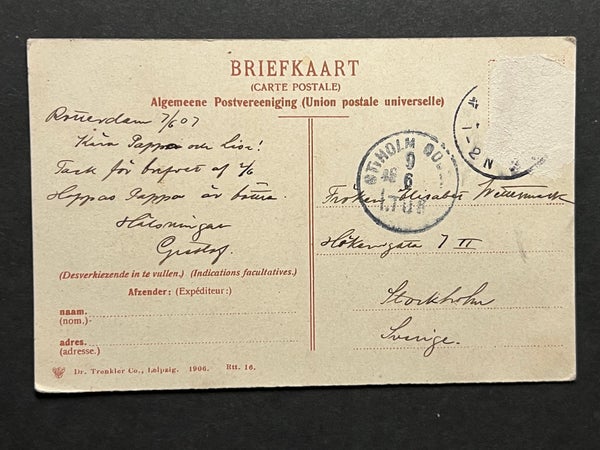 BRIEFKAART
(CARTE POSTALE)
Algemeene Postvereeniging (Union postale universelle)
Rotterdam 7/6 07
Kära Pappa och Lisa!
Tack för brefvet af 2/6
Hoppas Pappa är bättre.
Hälsningar
Gustaf.
(Desverkiezende in te vullen.) (Indications facultatives.)
Afzender: (Expéditeur:)
naam.
(nom.)
adres.
(adresse.)
Dr. Trenkler Co., Leipzig. 1906. Rtt. 16.
1-2 N
STHOLM
9
6
1.TUR
Fröken Elisabet Wettermark
Hökensgata 7 II
Stockholm
Sverige.